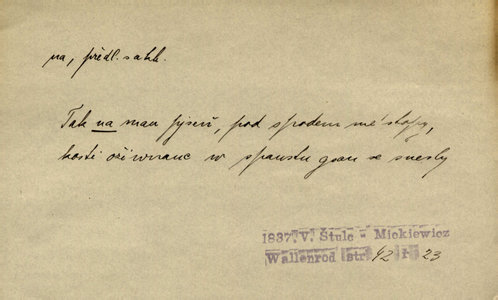 na, předl. s akk.
Tak na mau pjseň, pod spodem mé stopy,
kosti oži wnanc w spaustu gsau se snesly
1837. V. Štulc - Mickiewicz
Wallenrod str. 42 I 23